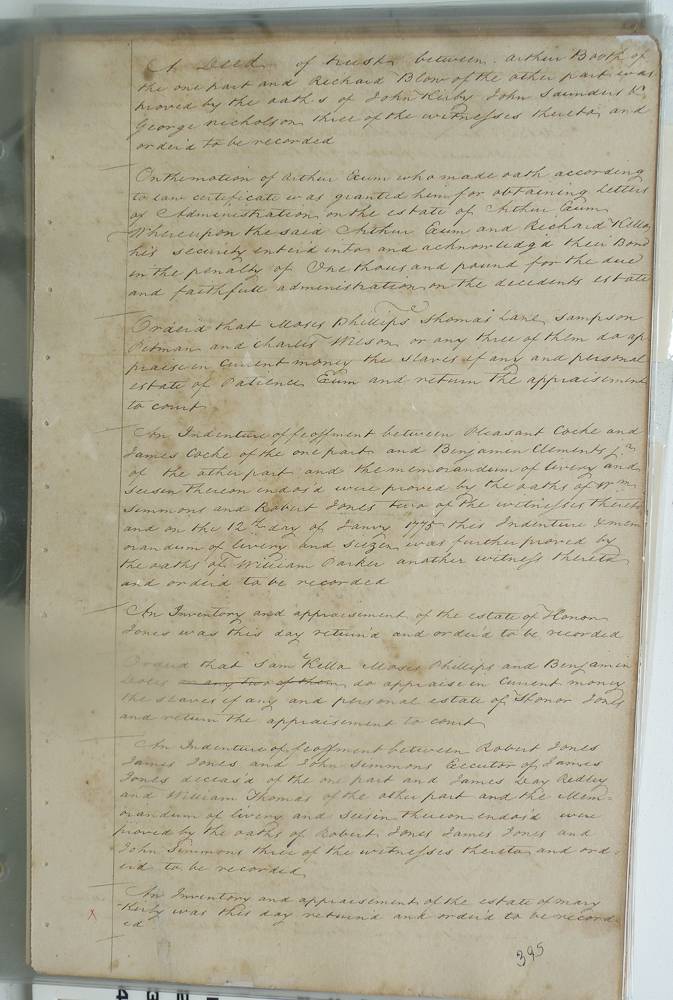 A Deed of trust between Arthur Booth of
the one part and Richard Blow of the other part was
proved by the oath's of John Kirby John Saunders &
George Nicholson three of the witnesses thereto and
order'd to be recorded
On the motion of Arthur Exum who made oath according
to law certificate was granted him for obtaining letters
of Administration on the estate of Arthur Exum
Whereupon the said Arthur Exum and Richard Kello
his security enter'd into and acknowledgd their Bond
in the penalty of One thousand pound for the due
and faithfull administration on the decedents estate
Order'd that Moses Phillips Thomas Lane Sampson
Pitman and Charles Wilson or any three of them do ap
praise in Current money the slaves if any and personal
estate of Patience Exum and return the appraisement
to court
An Indenture of feoffment between Pleasant Cocke and
James Cocke of the one part and Benjamin Clements Jr
of the other part and the memorandum of livery and
seisin thereon endos'd were proved by the oaths of Wm
Simmons and Robert Jones two of the witnesses thereto
and on the 12th day of Janry 1775 this Indenture & mem
orandum of livery and seizen was further proved by
the oaths of William Parker another witness thereto
and order'd to be recorded
An Inventory and appraisement of the estate of Honor
Jones was this day return'd and order'd to be recorded
Order'd that Sam Kello Moses Phillips and Benjamin
or any two of them do appraise in Current money
the slaves if any and personal estate of Honor Jones
and return the appraisement to court
An Indenture of feoffment between Robert Jones
James Jones and John Simmons Executor of James
Jones deceas'd of the one part and James Day Redley
and William Thomas of the other part and the Mem=
orandum of livery and seisin thereon endos'd were
proved by the oaths of Robert Jones James Jones and
John Simmons three of the witnesses thereto and ord
er'd to be recorded
An Inventory and appraisement of the estate of Mary
X Kirby was this day return'd and order'd to be record
ed
395